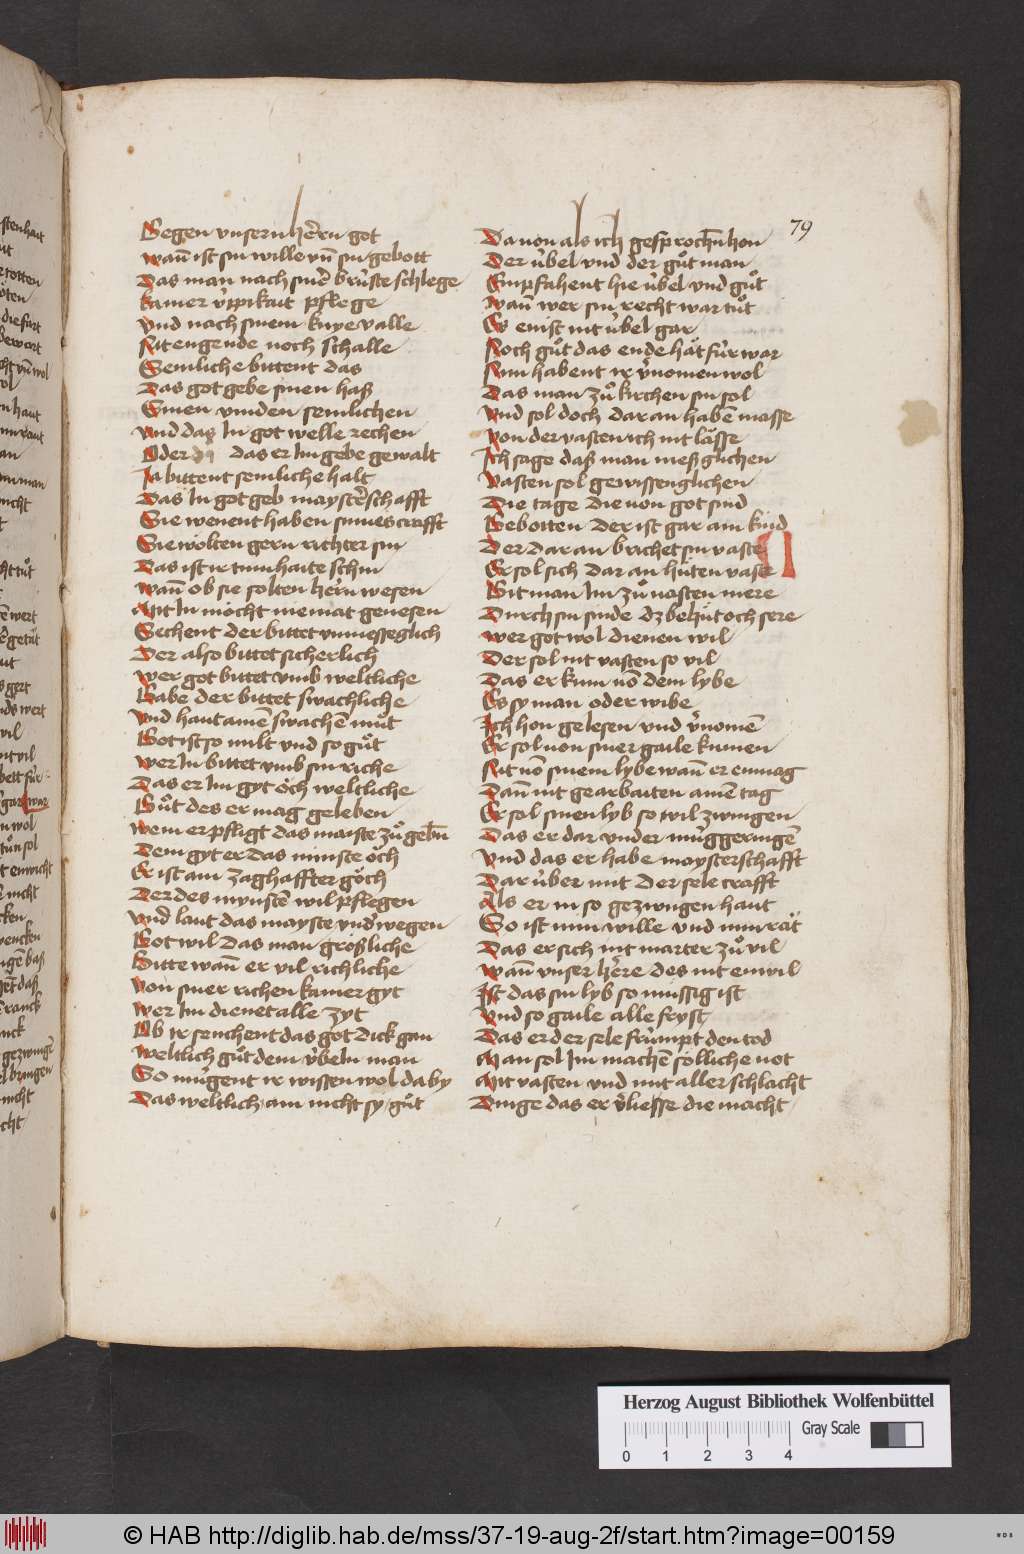 79
Gegen vnsern herrn got
wañ ist sin wille vñ sin gebott
Das man nach sinẽ brúste schlege
kainer v̓ppikait pflege
vnd nach sinem knye valle
Mit engende noch schalle
Semliche bittent das
Das got gebe sinen haß
Sinen vinden semlichen
vnd das In got welle rechen
Oder das er Im gebe gewalt
Ja bittent semliche halt
Das In got geb maysterschafft
Sie wenent haben sinnes crafft
Sie wolten gern richter sin
Das ist ir tumhaite schin
wañ ob sie solten herrn wesen
Mit In möcht niemat genesen
Sechent der bittet vnmesseglich
Der also bittet sicherlich
wer got bittet vmb weltliche
Gabe der bittet swachliche
vnd hat aine swachẽ můt
Got ist so milt vnd so gůt
wer In bittet vmb sin riche
Das er Im gyt ŏch weltliche
Gůt des er mag geleben
wem er pfligt das maiste zů gebñ
Dem gyt er das minste ŏch
Er ist ain zaghaffter gŏch
Der des mynstẽ wil pflegen
vnd laut das mayste vnd wegen
Got wil das man großliche
Bitte wañ er vil richliche
von siner richen kamer gyt
wer Im dienet alle zyt
Ob ir senchent das got dick gan
weltlich gůt dem v̓beln man
So mügent ir wissen wol da by
Das weltlich ain nicht sy gůt
Da von als ich gesprochñ hon
Der v̓bel vnd der gůt man
Empfahent hie v̓bel vnd gůt
wañ wer sin recht war tůt
Es enist nit v̓bel gar
Noch gůt das ende hat für war
Nun habent ir v̓nomen wol
Das man zů kirchen sin sol
vnd sol doch dar an habẽ masse
von der vasten ich nit lässe
Ich sage daß man meßglichen
vasten sol gewissenglichen
Die tage die von got sind
Gebotten der ist gar ain kind
Der dar an brichet sin vaste
Er sol sich dar an hüten vaste
Git man Im zů vasten mere
Durch sin sinde dz behüt och sere
wer got wol dienen wil
Der sol nit vasten so vil
Das er kum võ dem lybe
Es sy man oder wibe
Ich hon gelesen vnd v̓nomẽ
Er sol von siner gaile kumen
Nit võ sinem lybe wañ er enmag
Dañ nit gearbaiten ainẽ tag
Er sol sinen lyb so wil zwingen
Das er dar vnder müg geringẽ
vnd das er habe maysterschafft
Dar v̓ber mit der sele crafft
Als er in so gezwngen haut
So ist min wille vnd min răt
Das er sich nit marter zů vil
wañ vnser herre des nit enwil
Ist das sin lyb so müssig ist
vnd so gaile alle fryst
Das er der sele frümpt den tod
Man sol Im machẽ sölliche not
Mit vasten vnd mit aller schlacht
Dinge das er v̓liesse die macht
Herzog August Bibliothek Wolfenbüttel
Gray Scale
0 1 2 3 4
© HAB http://diglib.hab.de/mss/37-19-aug-2f/start.htm?image=00159